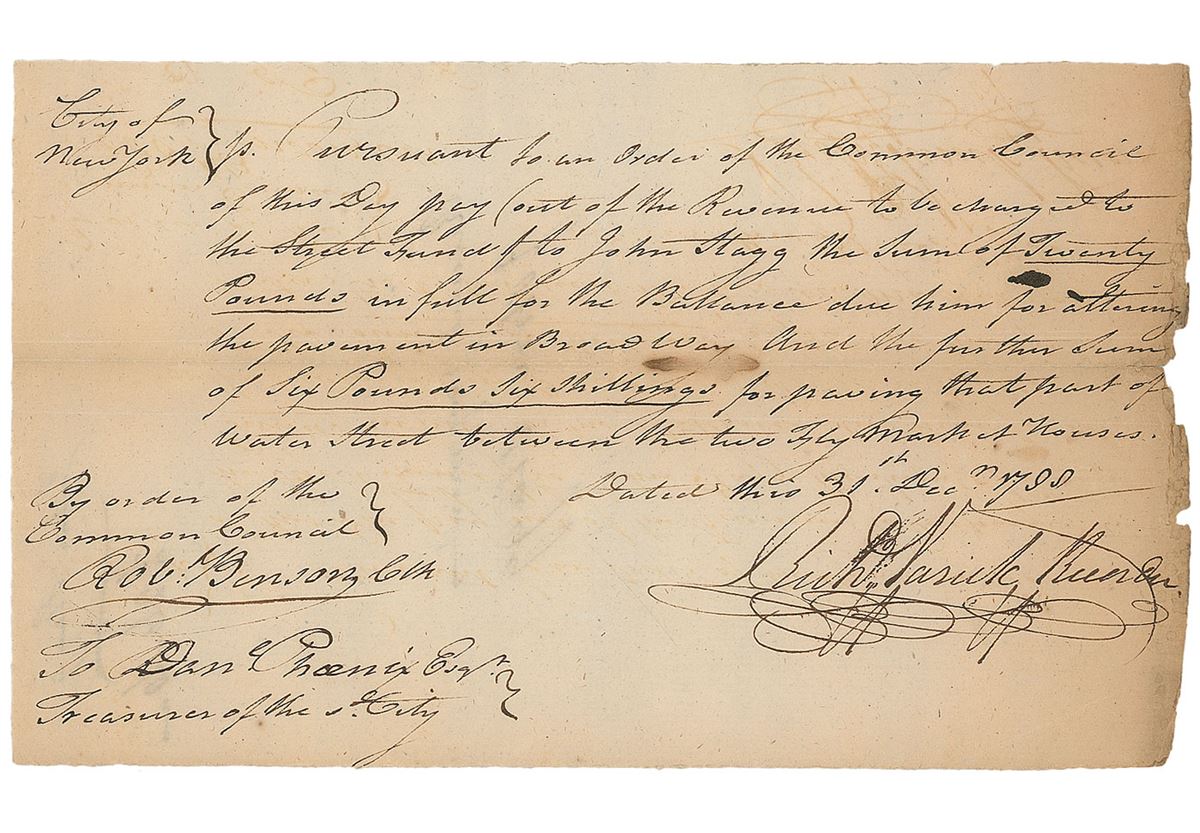 City of
New York } ss. Pursuant to an Order of the Common Council
of this Day pay (out of the Revenue to be charged to
the Street Fund) to John Stagg the Sum of Twenty
Pounds in full for the Ballance due him for altering
the pavement in Broad Way And the further Sum
of Six Pounds Six Shillings for paving that part of
Water Street between the two Fly Market Houses.
Dated this 31st. Decr. 1788
By order of the
Common Council }
Robt. Benson, Clk
Richd. Varick, Recorder
To Danl. Phœnix Esqr.
Treasurer of the sd. City }